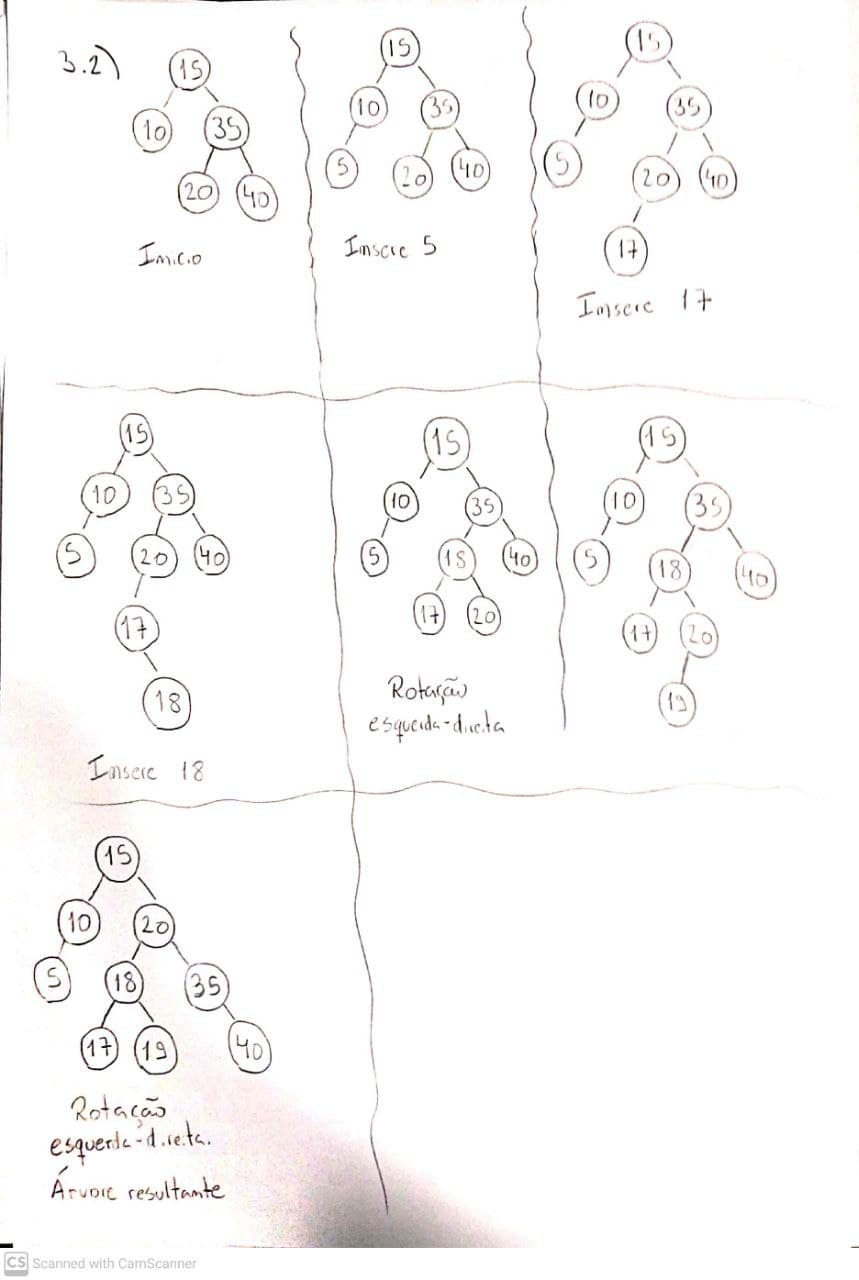 3.2)
15
10 35
20 40
Início
15
10 35
5 20 40
Insere 5
15
10 35
5 20 40
17
Insere 17
15
10 35
5 20 40
17
18
Insere 18
15
10 35
5 18 40
17 20
Rotação
esquerda-direita
15
10 35
5 18 40
17 20
19
15
10 20
5 18 35
17 19 40
Rotação
esquerda-direita.
Árvore resultante
CS Scanned with CamScanner